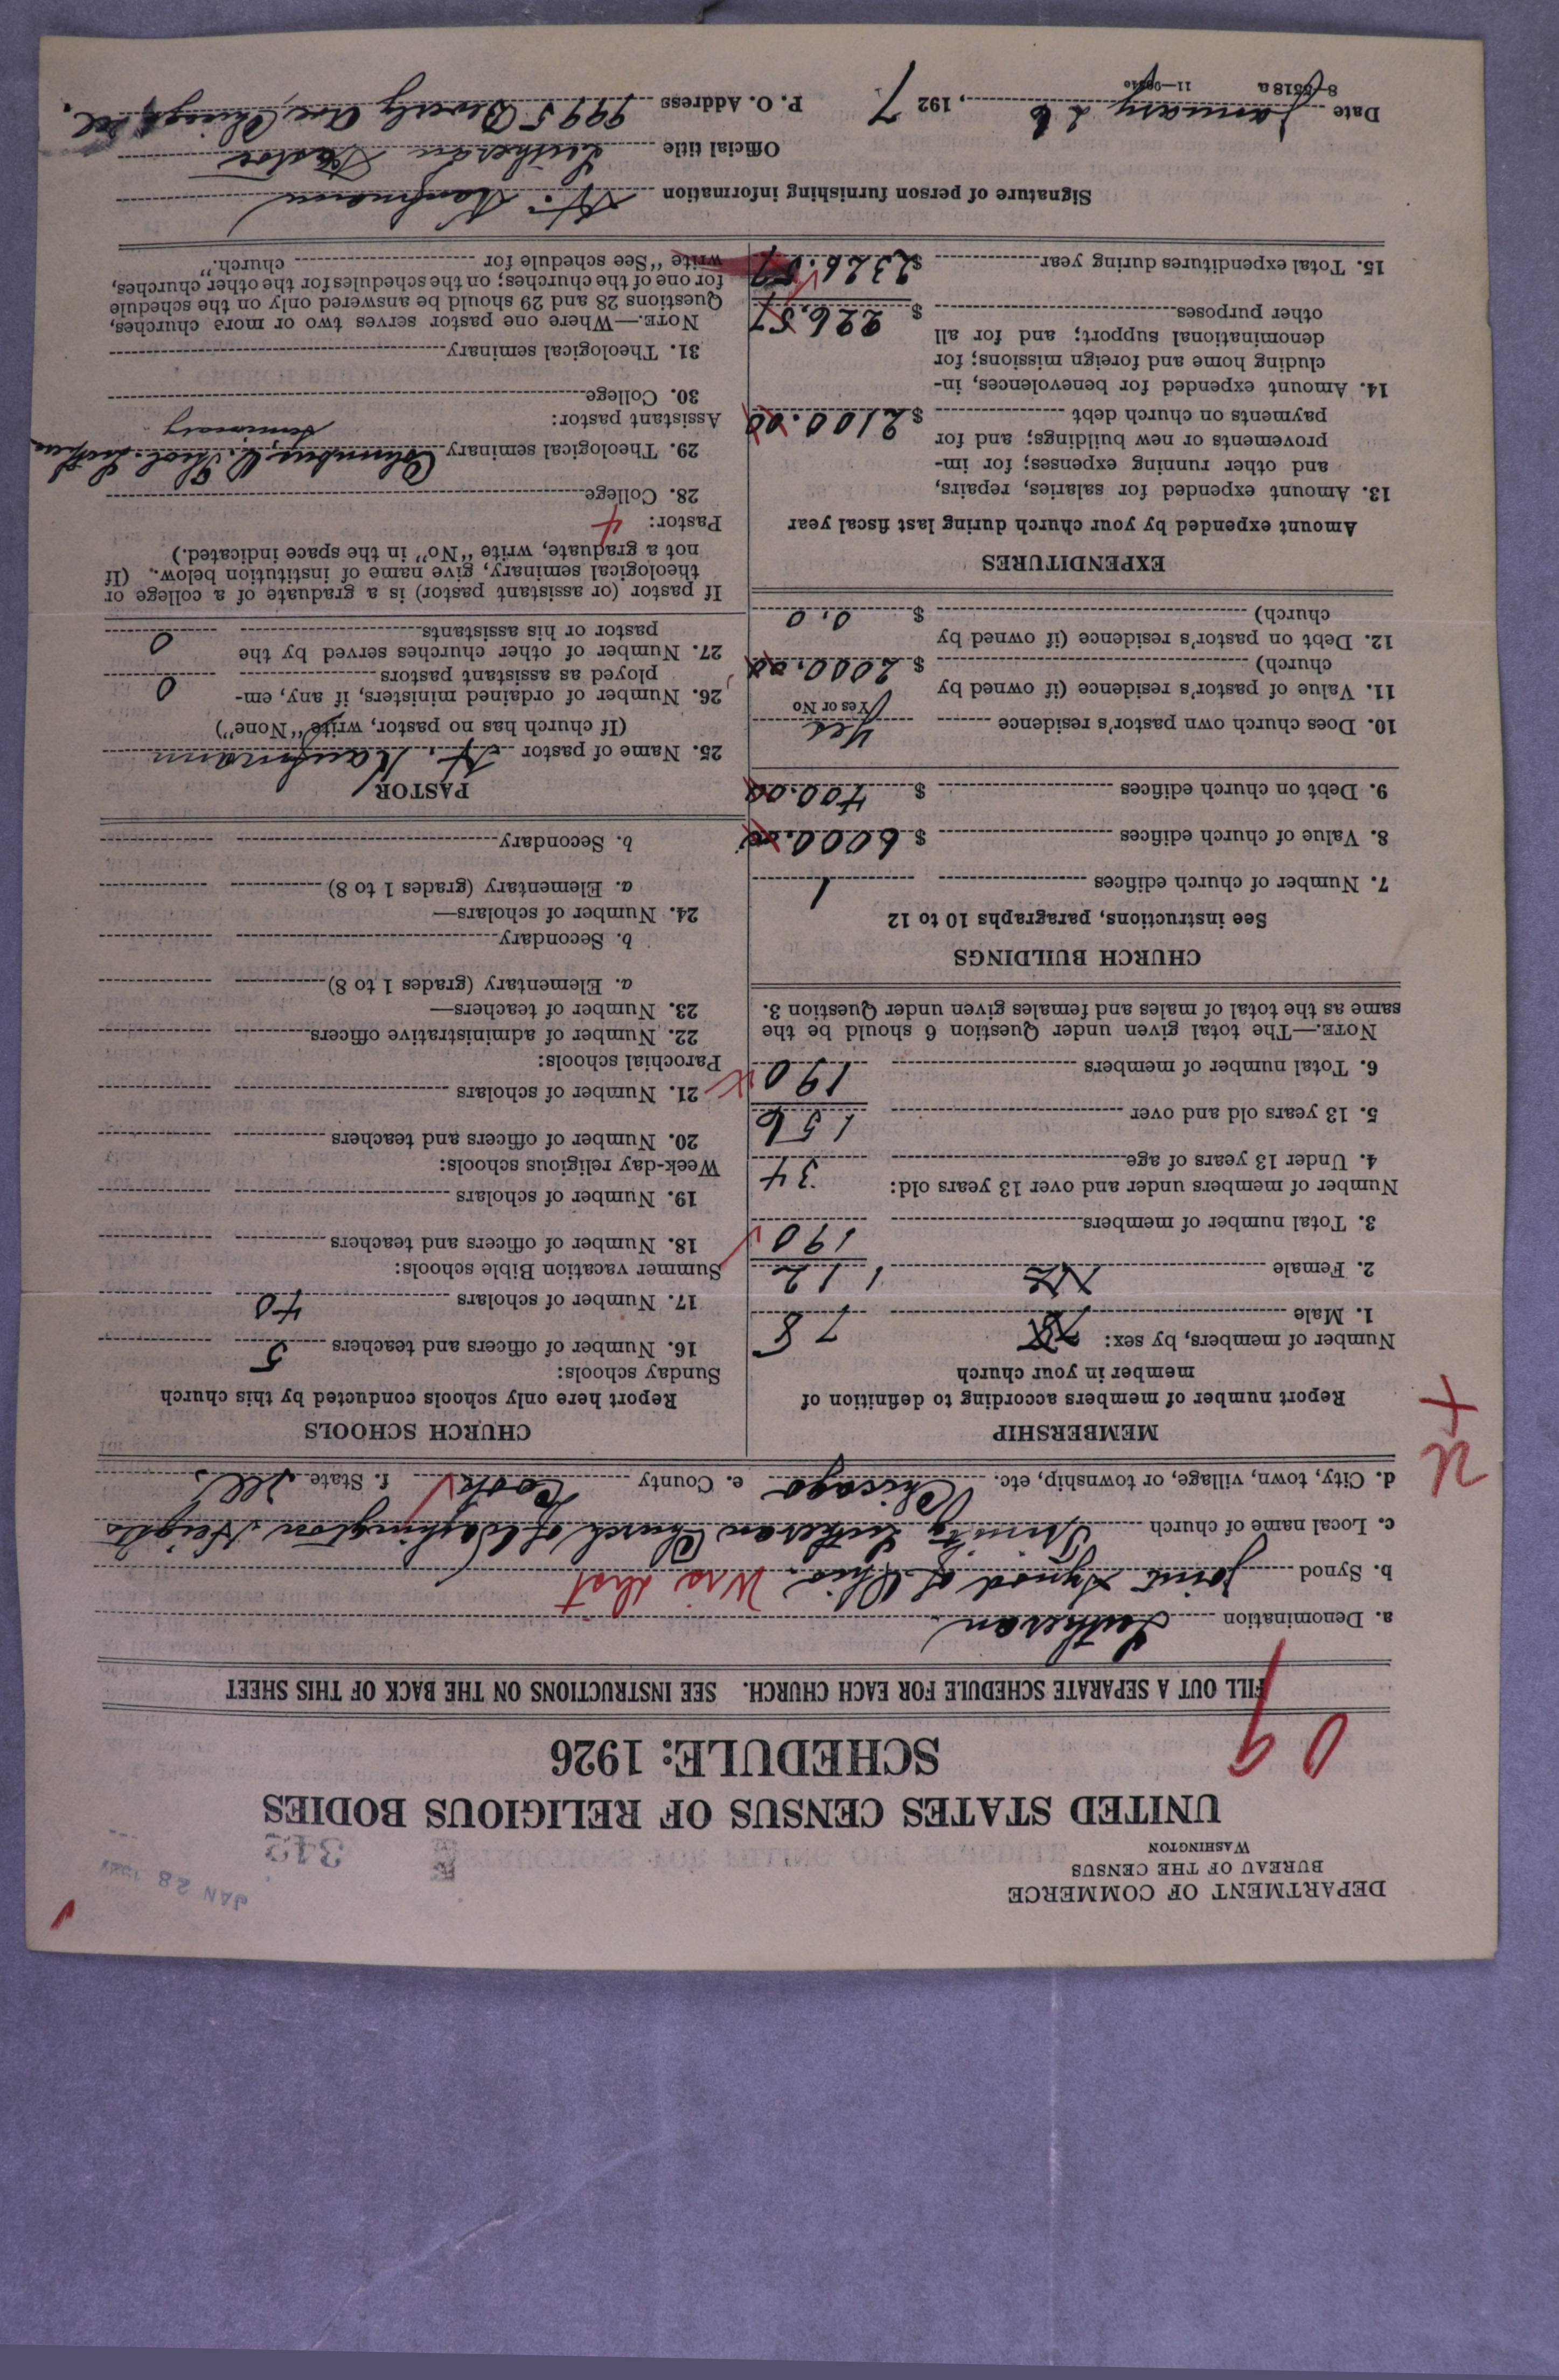 DEPARTMENT OF COMMERCE
BUREAU OF THE CENSUS
WASHINGTON
JAN 28
343
UNITED STATES CENSUS OF RELIGIOUS BODIES
SCHEDULE: 1926
09
FILL OUT A SEPARATE SCHEDULE FOR EACH CHURCH. SEE INSTRUCTIONS ON THE BACK OF THIS SHEET
a. Denomination Lutheran
b. Synod Joint Synod of Ohio. Wis dist
c. Local name of church Trinity Lutheran Church of Washington Heights
d. City, town, village, or township, etc. Chicago e. County Cook f. State Ills
MEMBERSHIP
Report number of members according to definition of
member in your church
Number of members, by sex:
1. Male 78
2. Female 112
3. Total number of members 190
Number of members under and over 13 years old:
4. Under 13 years of age 34
5. 13 years old and over 156
6. Total number of members 190
NOTE.—The total given under Question 6 should be the
same as the total of males and females given under Question 3.
CHURCH BUILDINGS
See instructions, paragraphs 10 to 12
7. Number of church edifices 1
8. Value of church edifices $ 6000.00
9. Debt on church edifices $ 400.00
10. Does church own pastor's residence Yes
Yes or No
11. Value of pastor's residence (if owned by
church) $ 2000.00
12. Debt on pastor's residence (if owned by
church) $ 0.0
EXPENDITURES
Amount expended by your church during last fiscal year
13. Amount expended for salaries, repairs,
and other running expenses; for im-
provements or new buildings; and for
payments on church debt $ 2100.00
14. Amount expended for benevolences, in-
cluding home and foreign missions; for
denominational support; and for all
other purposes $ 226.57
15. Total expenditures during year $ 2326.57
CHURCH SCHOOLS
Report here only schools conducted by this church
Sunday schools:
16. Number of officers and teachers 5
17. Number of scholars 40
Summer vacation Bible schools:
18. Number of officers and teachers
19. Number of scholars
Week-day religious schools:
20. Number of officers and teachers
21. Number of scholars
Parochial schools:
22. Number of administrative officers
23. Number of teachers—
a. Elementary (grades 1 to 8)
b. Secondary
24. Number of scholars—
a. Elementary (grades 1 to 8)
b. Secondary
PASTOR
25. Name of pastor H. Kaufmann
(If church has no pastor, write "None")
26. Number of ordained ministers, if any, em-
ployed as assistant pastors 0
27. Number of other churches served by the
pastor or his assistants 0
If pastor (or assistant pastor) is a graduate of a college or
theological seminary, give name of institution below. (If
not a graduate, write "No" in the space indicated.)
Pastor: 4
28. College
29. Theological seminary Columbus O. Theol. Luthern
Seminary
Assistant pastor:
30. College
31. Theological seminary
NOTE.—Where one pastor serves two or more churches,
Questions 28 and 29 should be answered only on the schedule
for one of the churches; on the schedules for the other churches,
write "See schedule for church."
Signature of person furnishing information H. Kaufmann
Official title Lutheran Pastor
Date January 26, 1927 P. O. Address 9995 Beverly Ave Chicago Ill.
8-5518a